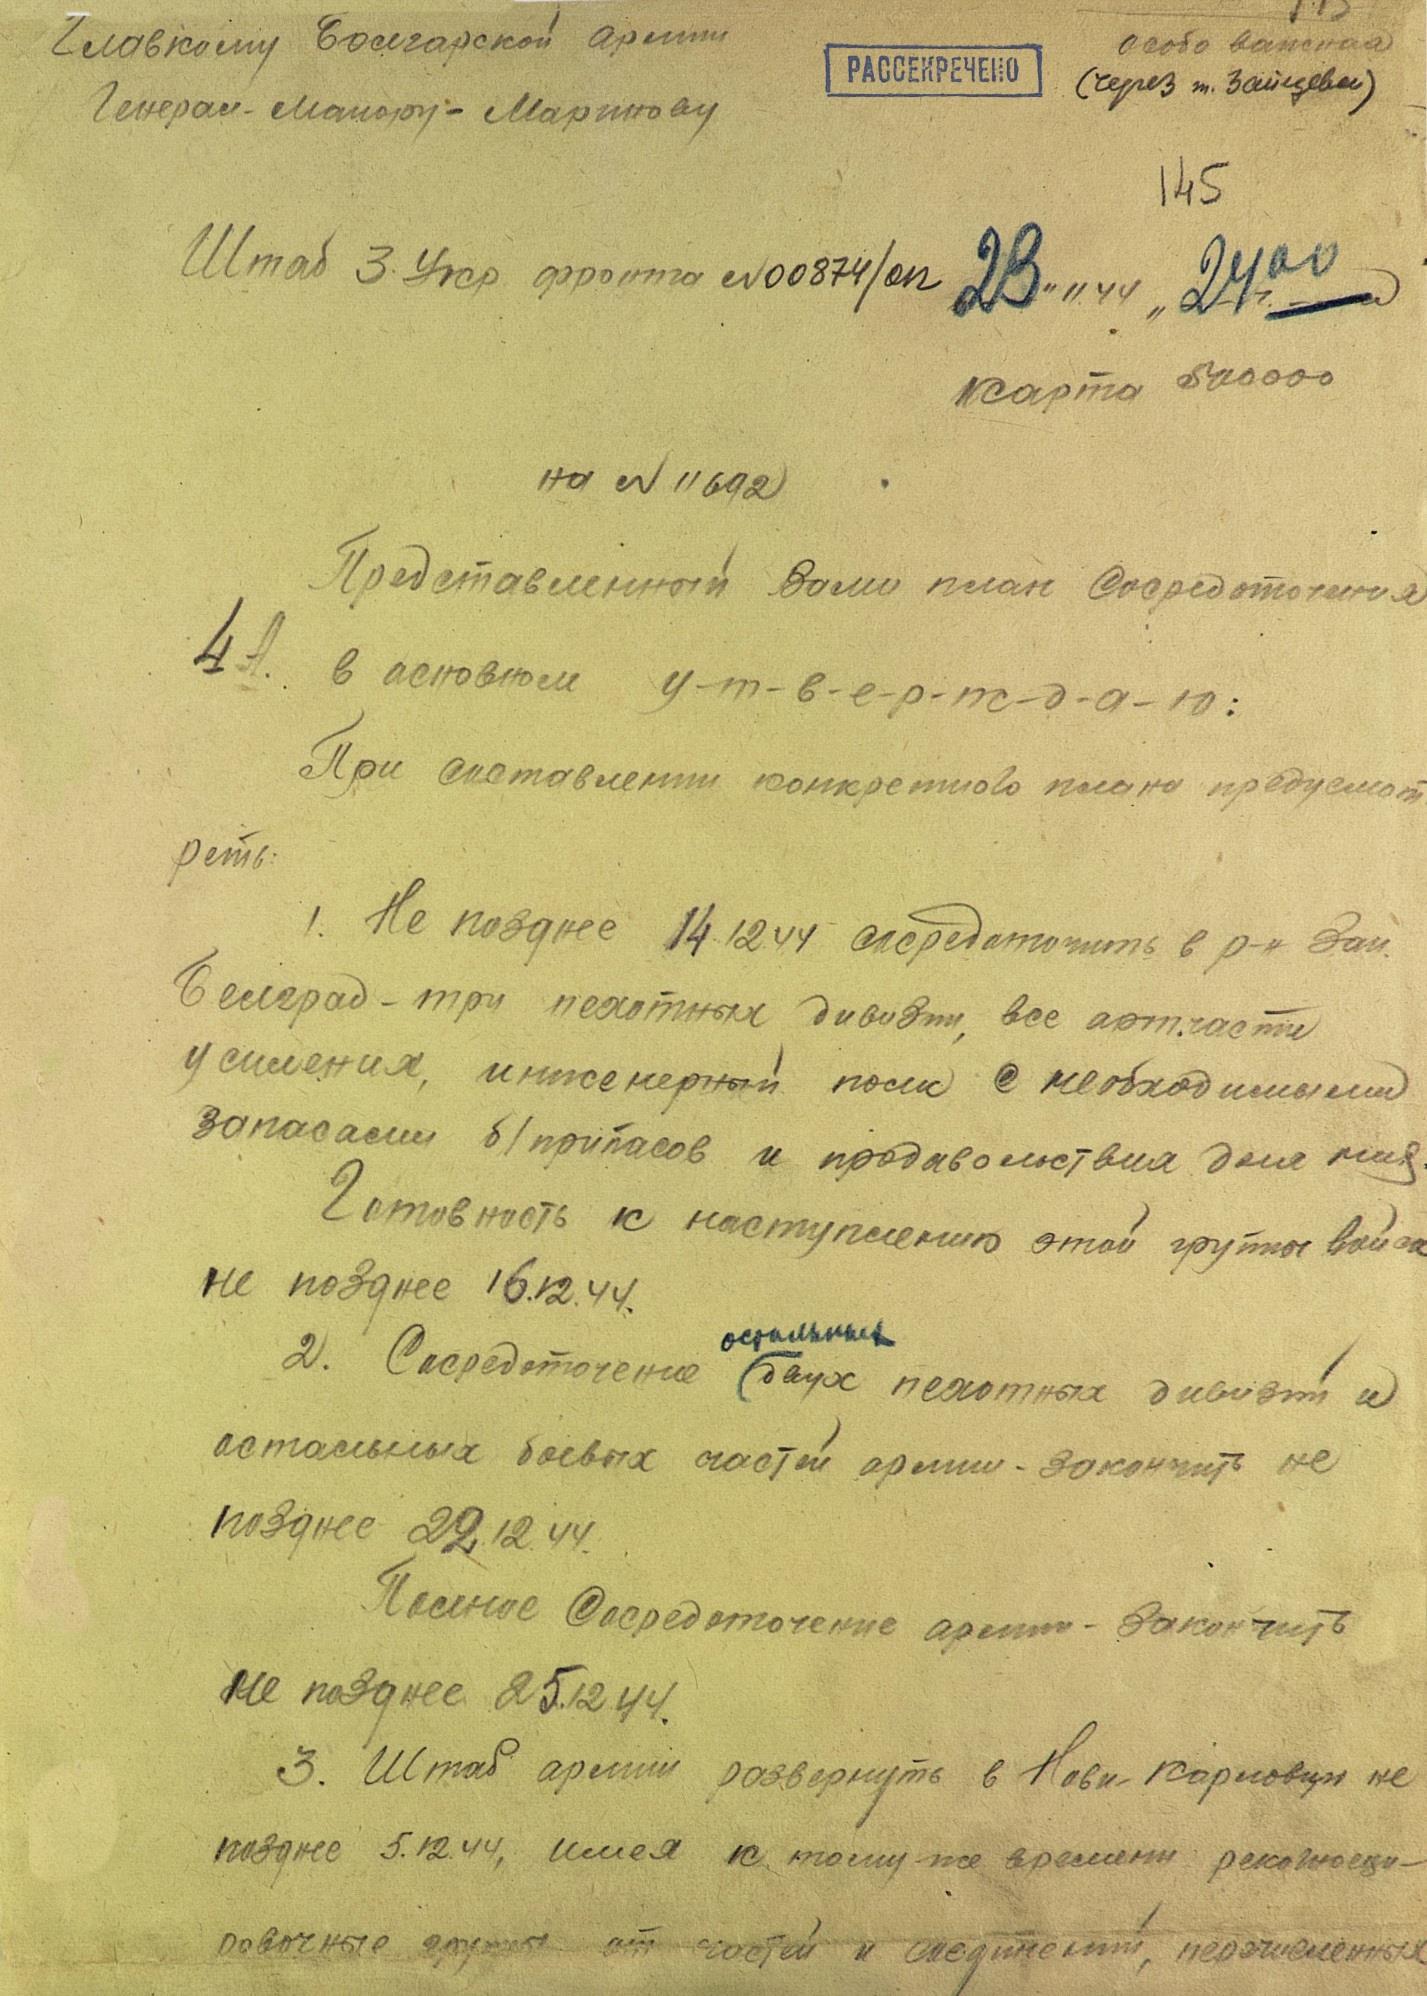 Главкому Болгарской армии
особо важная
РАССЕКРЕЧЕНО
(через т. Зайцева)
Генерал-Майору-Маринову
145
Штаб 3 Укр фронта №00874/оп 23 " 11.44 " 24 00
карта 500000
на № 11692
Представленный Вами план сосредоточения
4 А. в основном у-т-в-е-р-ж-д-а-ю:
При составлении конкретного плана предусмот
реть:
1. Не позднее 14.12.44 сосредоточить в р-н Зап.
Белград-три пехотных дивизии, все артчасти
усиления, инженерный полк с необходимыми
запасами б/припасов и продовольствия для них.
Готовность к наступлению этой группы войск
не позднее 16.12.44.
остальных
2. Сосредоточение двух пехотных дивизий и
остальных боевых частей армии-закончить не
позднее 22.12.44.
Полное сосредоточение армии-закончить
не позднее 25.12.44.
3. Штаб армии развернуть в Нови-Карловци не
позднее 5.12.44, имея к тому-же времени рекогносци-
ровочные группы от частей и соединений, перечисленных